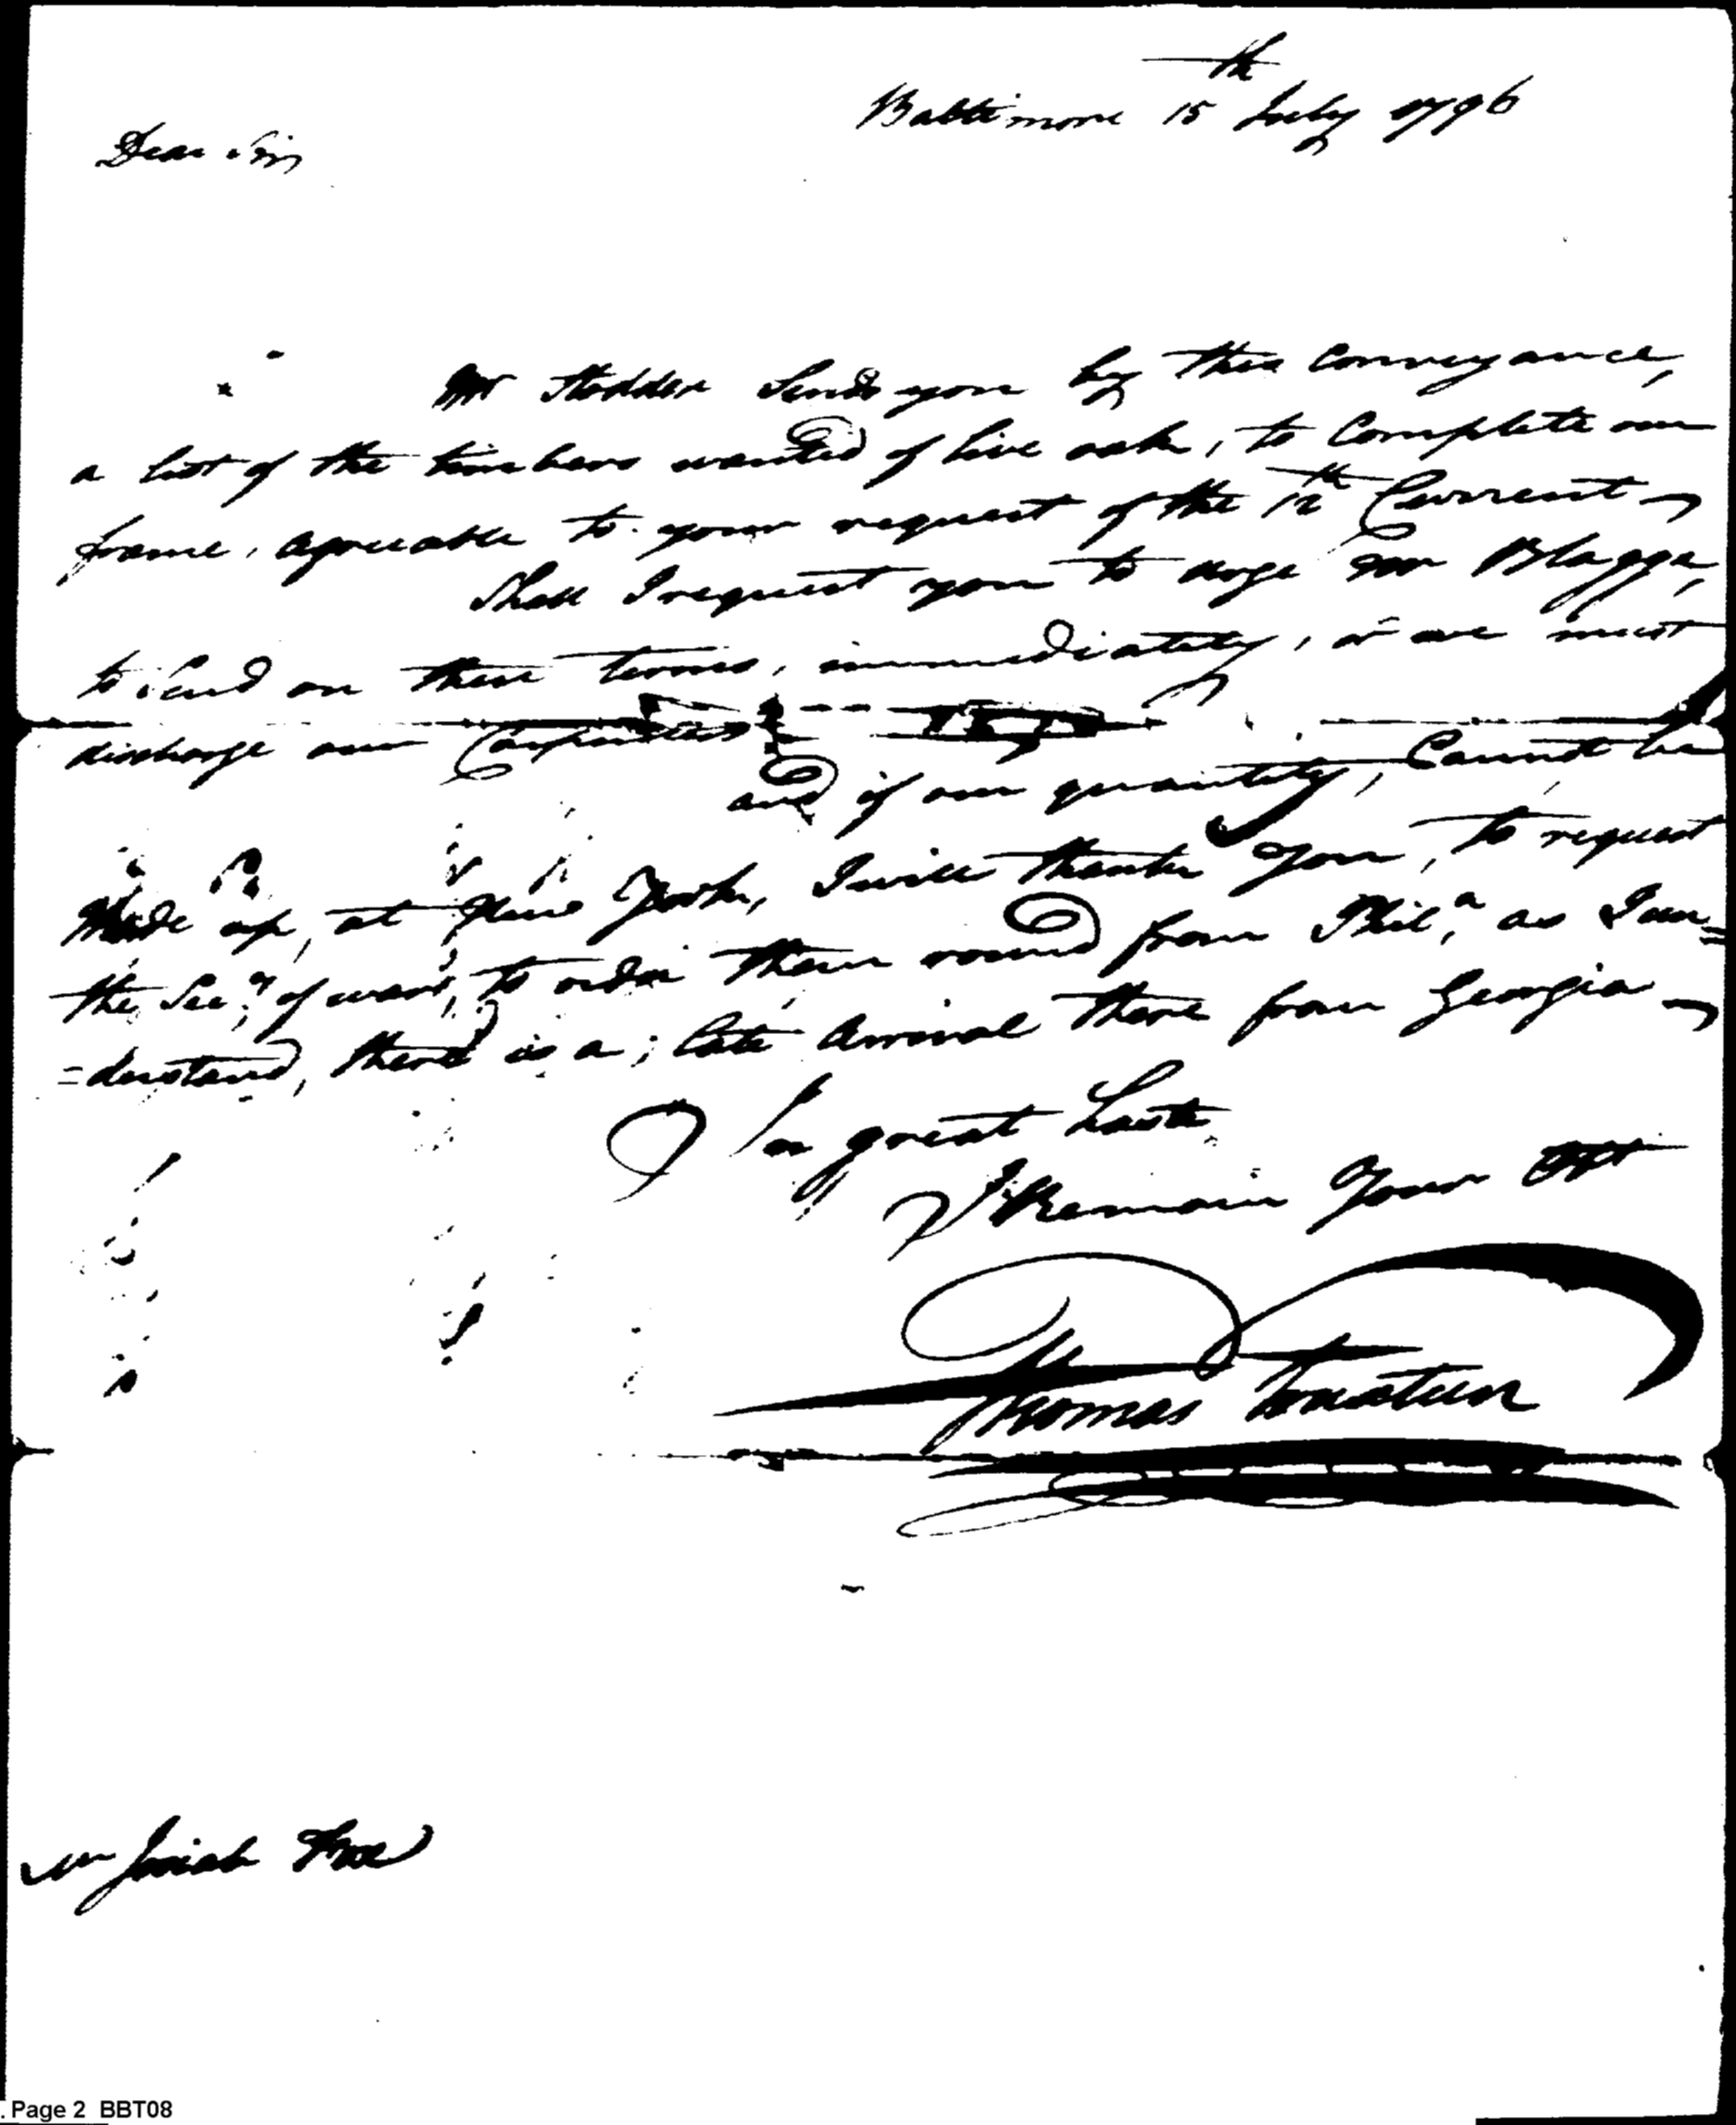 Baltimore 15th July 1796
Dear Sir
Mr Stodder Sends you by this Conveyance,
a list of the timbers wanted of live oake, to Complete our
frame, agreeable to your request of the 12th Current
Shall I request you to urge Mr Blagge,
to send on these terms, immediately, or we must
discharge our Carpenters
and if our quantity, Cannot be
Made up, at New York, I will thank you, to request
the Secy of war, to order them round from Phila, as I un=
=derstand, there is a late Arrival there from Georgia
In great haste
I Remain Your
Thomas Truxtun
Mr Josiah Fox
. Page 2 BBT08